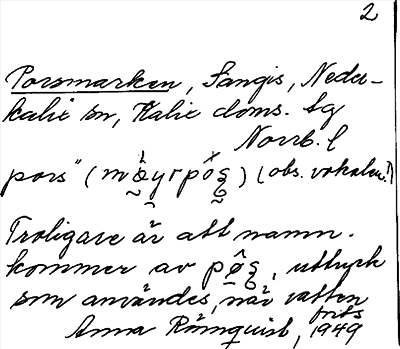 2
Porsmarken, Sangis, Neder-
kalix sn, Kalix doms. sg
Norrb. l
pors" (                ) (obs. vokalen!)
Troligare är att namn.
kommer av                , uttryck
som användes, när vatten
frös
Anna Rönnquist, 1949